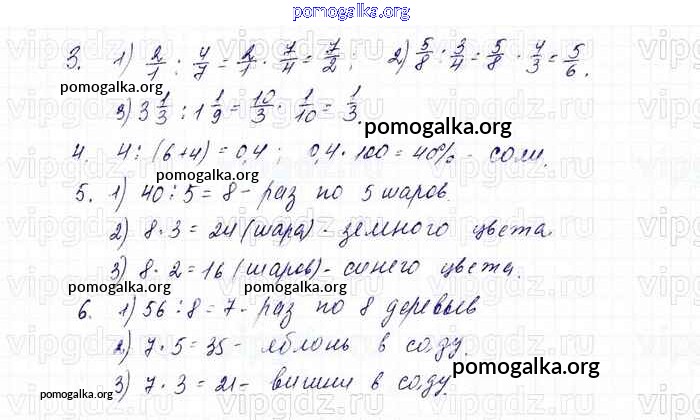 pomogalka.org
3. 1) 2/1 : 4/7 = 2/1 · 7/4 = 7/2 ; 2) 5/8 : 3/4 = 5/8 · 4/3 = 5/6.
pomogalka.org
3) 3 1/3 : 1 1/9 = 10/3 · 1/10 = 1/3.
pomogalka.org
4. 4 : (6+4) = 0,4 ; 0,4 · 100 = 40% - соли.
pomogalka.org
5. 1) 40 : 5 = 8 - раз по 5 шаров.
2) 8 · 3 = 24 (шара) - земного цвета
3) 8 · 2 = 16 (шаров) - синего цвета.
pomogalka.org pomogalka.org
6. 1) 56 : 8 = 7 - раз по 8 деревьев
2) 7 · 5 = 35 - яблонь в саду.
pomogalka.org
3) 7 · 3 = 21 - вишни в саду.
pomogalka.org
vipgdz.ru